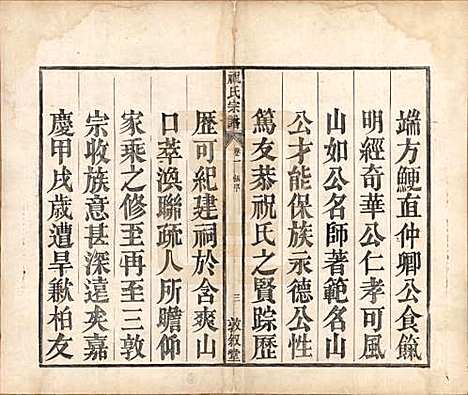 端方鯁直仲卿公食餼
明經奇華公仁孝可風
山如公名師著範名山
公才能保族永德公性
篤友恭祝氏之賢踪歷
祝氏宗譜 卷一 三 敦叙堂
歷可紀建祠於含爽山
口萃渙聯疏人所瞻仰
家乘之修至再至三敦
宗收族意甚深遠矣嘉
慶甲戌歲遭旱歉柏友